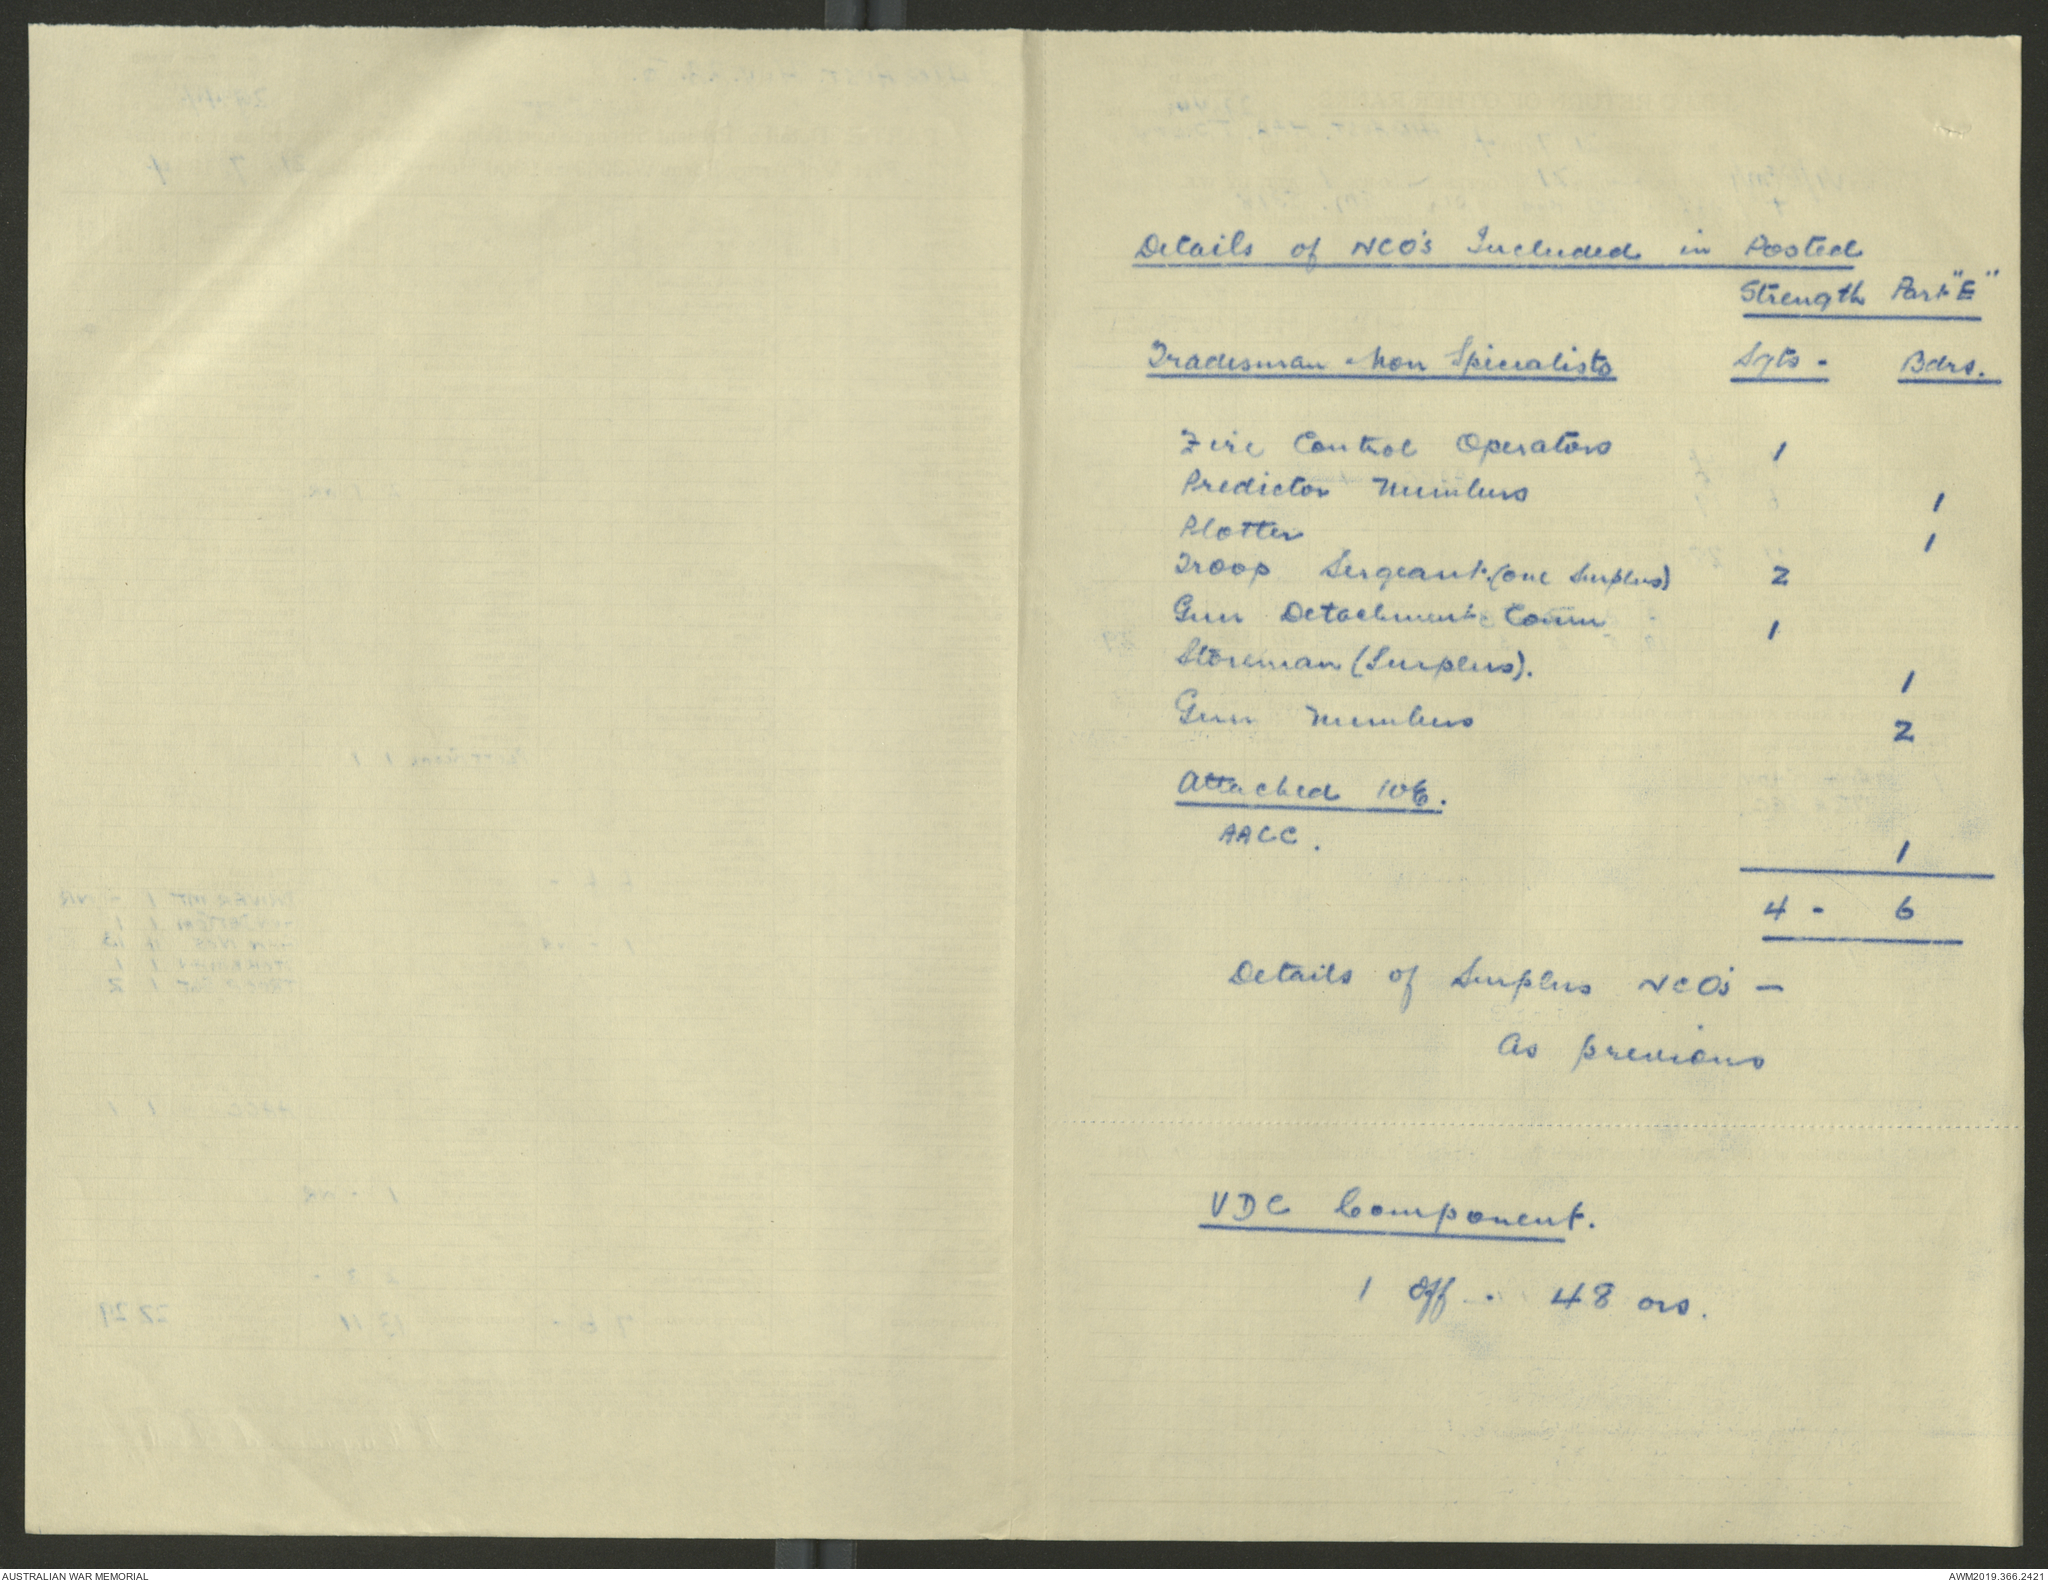 Details of NCO's Included in Posted
Strength Part "E"
Tradesman - Non Specialists Sgts - Bdrs.
Fire Control Operators 1
Predictor Numbers 1
Plotter 1
Troop Sergeant (one Surplus) 2
Gun Detachment Comm 1
Storeman (Surplus). 1
Gun Numbers 2
Attached WE.
AACC. 1
4 - 6
Details of Surplus NCO's -
As previous
VDC Component.
1 Off - 48 ors.
AUSTRALIAN WAR MEMORIAL
AWM2019.366.2421